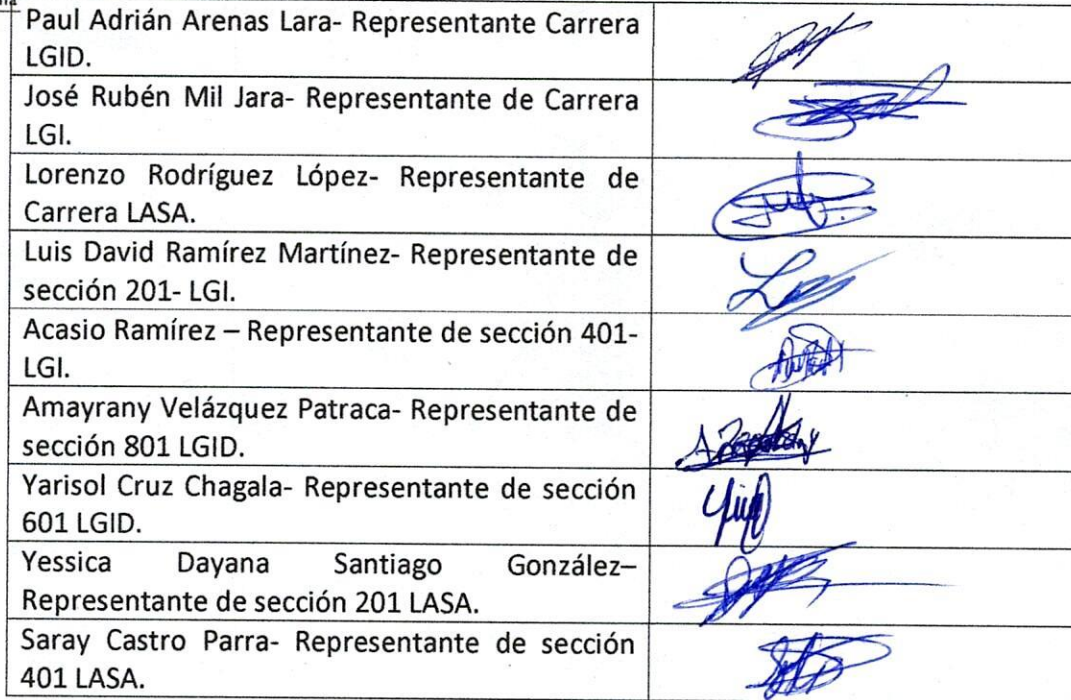 Paul Adrián Arenas Lara- Representante Carrera
LGID.
José Rubén Mil Jara- Representante de Carrera
LGI.
Lorenzo Rodríguez López- Representante de
Carrera LASA.
Luis David Ramírez Martínez- Representante de
sección 201- LGI.
Acasio Ramírez – Representante de sección 401-
LGI.
Amayrany Velázquez Patraca- Representante de
sección 801 LGID.
Yarisol Cruz Chagala- Representante de sección
601 LGID.
Yessica Dayana Santiago González–
Representante de sección 201 LASA.
Saray Castro Parra- Representante de sección
401 LASA.